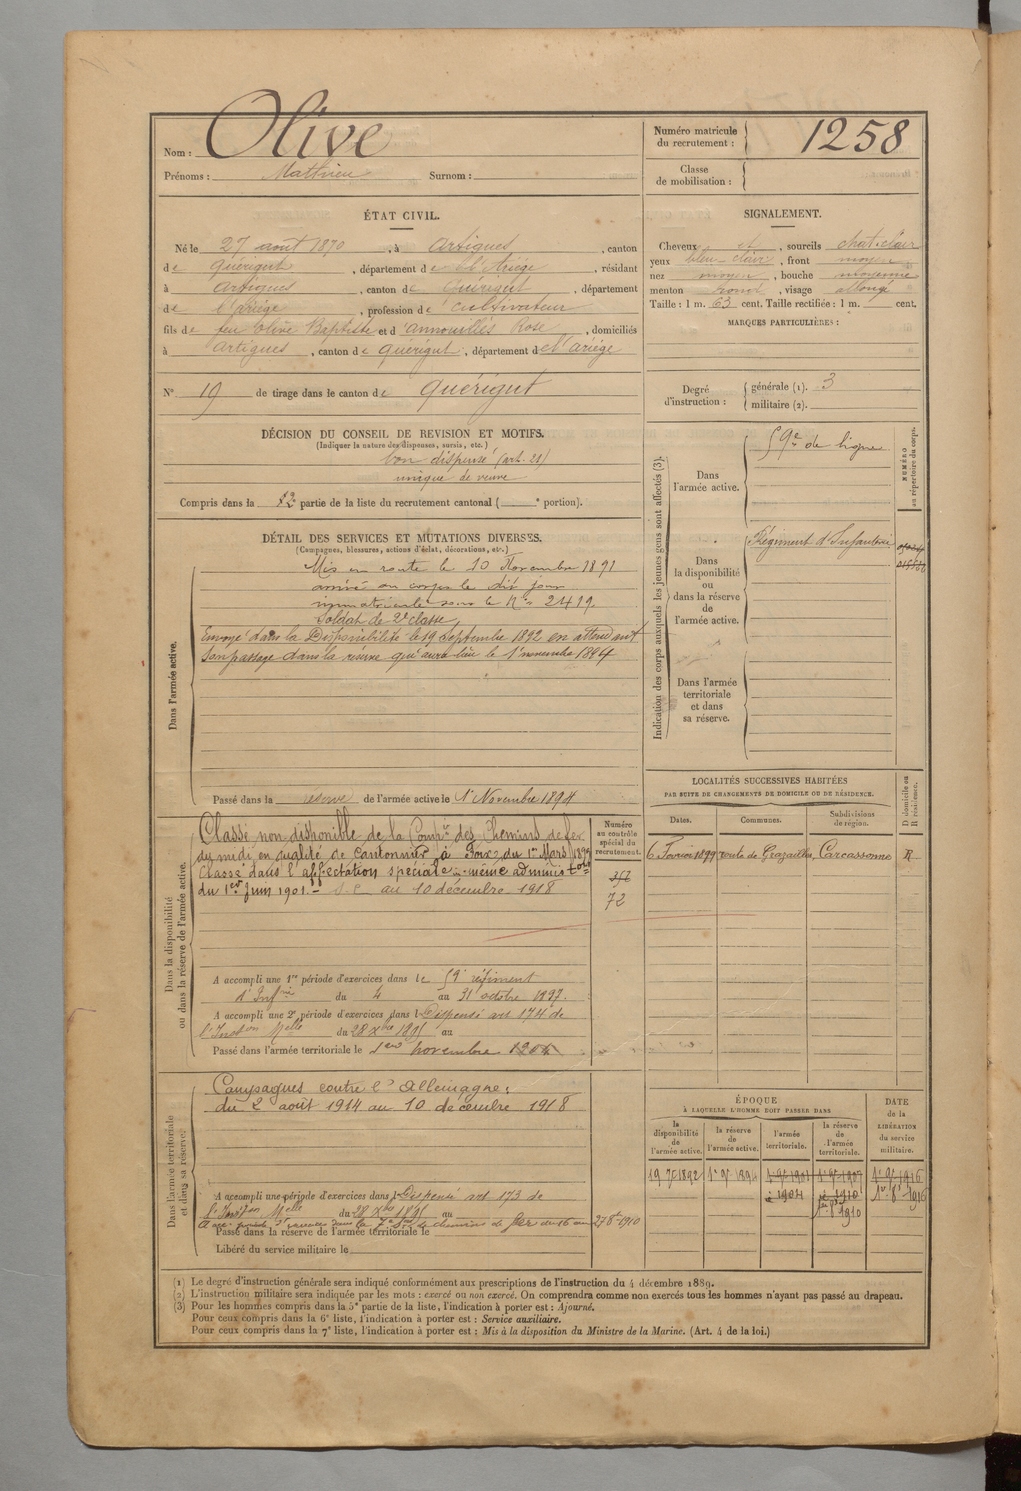 Nom : Olive
Prénoms : Mathieu Surnom :
Numéro matricule du recrutement : 1258
Classe de mobilisation :
ÉTAT CIVIL.
Né le 27 août 1870, à Artigues, canton
de Quérigut, département de l'Ariége, résidant
à Artigues, canton de Quérigut, département
de l'Ariége, profession de cultivateur
fils de feu Olive Baptiste et d'annouillés Rose, domiciliés
à Artigues, canton de Quérigut, département de l'ariége
SIGNALEMENT.
Cheveux et, sourcils chat-clair
yeux bleu-clair, front moyen
nez moyen, bouche moyenne
menton rond, visage allongé
Taille : 1 m. 63 cent. Taille rectifiée : 1 m. cent.
MARQUES PARTICULIÈRES :
N° 19 de tirage dans le canton de Quérigut
Degré d'instruction : générale (1). 3
militaire (2).
DÉCISION DU CONSEIL DE REVISION ET MOTIFS.
(Indiquer la nature des dispenses, sursis, etc.)
bon dispensé (art. 21)
unique de veuve
Compris dans la partie de la liste du recrutement cantonal ( e portion).
DÉTAIL DES SERVICES ET MUTATIONS DIVERSES.
(Campagnes, blessures, actions d'éclat, décorations, etc.)
Dans l'armée active.
Mis en route le 10 Novembre 1891
arrivé au corps le dit jour
immatriculé sous le N° 2419.
Soldat de 2e classe,
Envoyé dans la Disponibilité le 19 Septembre 1892 en attendant
son passage dans la réserve qui aura lieu le 1er novembre 1894
Passé dans la réserve de l'armée active le 1er Novembre 1894
Indication des corps auxquels les jeunes gens sont affectés (3).
NUMÉRO au répertoire du corps.
Dans l'armée active.
59e de ligne
Dans la disponibilité ou dans la réserve de l'armée active.
Régiment d'Infanterie
Dans l'armée territoriale et dans sa réserve.
LOCALITÉS SUCCESSIVES HABITÉES
PAR SUITE DE CHANGEMENTS DE DOMICILE OU DE RÉSIDENCE.
Dates. Communes. Subdivisions de région. D domicile ou R résidence.
6 Février 1899 route de Grazailles, Carcassonne R
Dans la disponibilité ou dans la réserve de l'armée active.
Numéro au contrôle spécial du recrutement.
72
Classé non disponible de la Comp.ie des Chemins de fer
du midi en qualité de Cantonnier à Foix du 1er Mars 189
Classé dans l'affectation spéciale même administ.on
du 1er Juin 1901. au 10 décembre 1918
A accompli une 1re période d'exercices dans le 59e régiment
d'Inf.ie du 4 au 31 octobre 1897.
A accompli une 2e période d'exercices dans l Dispensé art 174 de
l'Inst.on Melle du 28 Xbre 1895 au
Passé dans l'armée territoriale le 1er novembre 1904
Dans l'armée territoriale et dans sa réserve.
Campagnes contre l'Allemagne :
du 2 août 1914 au 10 décembre 1918
A accompli une période d'exercices dans l Dispensé art 173 de
l'Inst.on Melle du 28 Xbre 1895 au
chemins de fer du 16 au 27 8bre 1910
Passé dans la réserve de l'armée territoriale le
Libéré du service militaire le
ÉPOQUE
À LAQUELLE L'HOMME DOIT PASSER DANS
la disponibilité de l'armée active. la réserve de l'armée active. l'armée territoriale. la réserve de l'armée territoriale.
DATE de la LIBÉRATION du service militaire.
19 7e 1892 1er 9e 1894 1er 9e 1901 1er 9e 1907 1er 9e 1916
1904 1910 1er 8e 1916
1er 8e 1910
(1) Le degré d'instruction générale sera indiqué conformément aux prescriptions de l'instruction du 4 décembre 1889.
(2) L'instruction militaire sera indiquée par les mots : exercé ou non exercé. On comprendra comme non exercés tous les hommes n'ayant pas passé au drapeau.
(3) Pour les hommes compris dans la 5e partie de la liste, l'indication à porter est : Ajourné.
Pour ceux compris dans la 6e liste, l'indication à porter est : Service auxiliaire.
Pour ceux compris dans la 7e liste, l'indication à porter est : Mis à la disposition du Ministre de la Marine. (Art. 4 de la loi.)